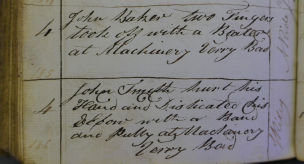 4 John Baker two Fingers
took off with a Beater
at Machinery Verry Bad
4 John Smyth hurt his
Hand and Dislicated his
Elbow with a Band
and Pully at Machanery
Verry Bad